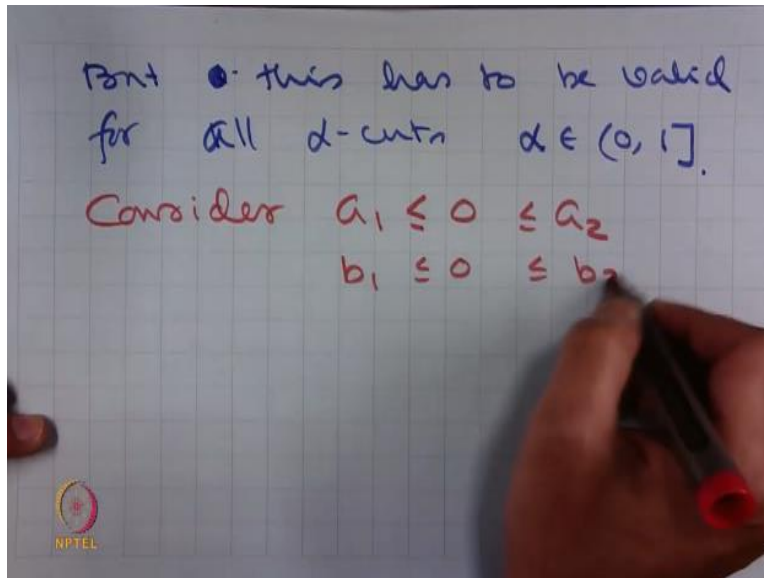 But this has to be valid
for all α-cuts α ∈ (0, 1].
Consider a₁ ≤ 0 ≤ a₂
b₁ ≤ 0 ≤ b₂
NPTEL